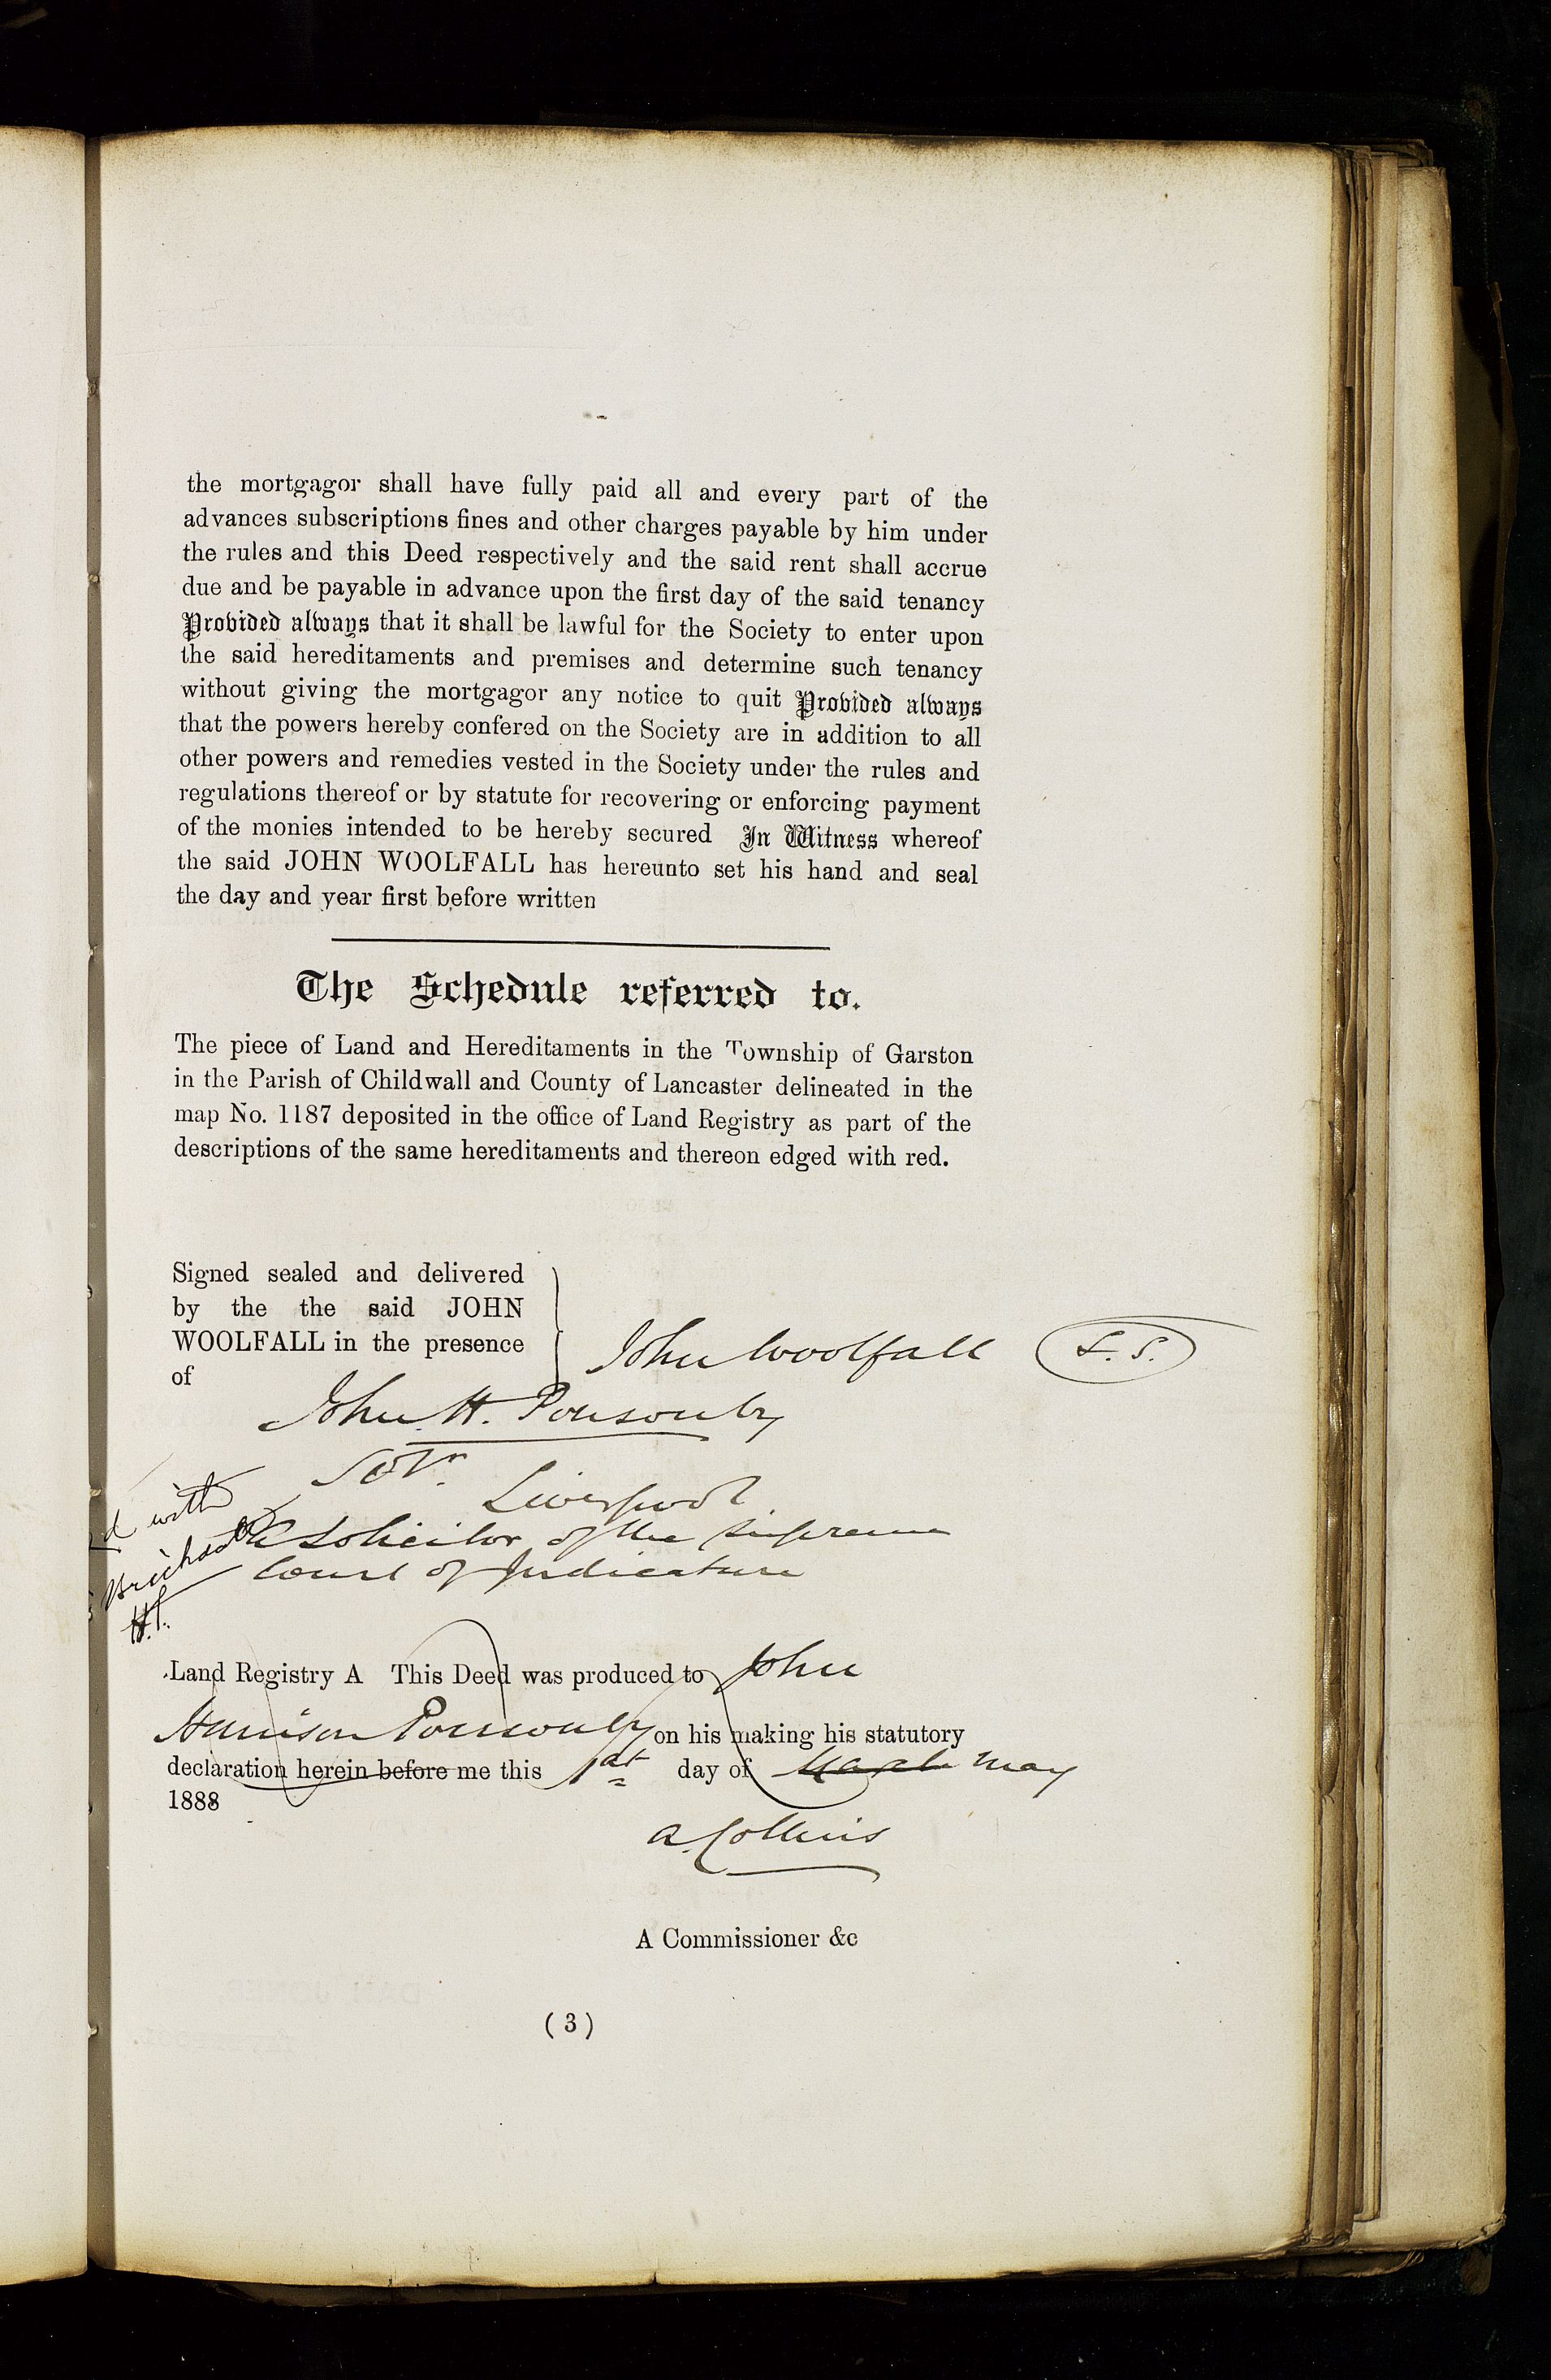 the mortgagor shall have fully paid all and every part of the
advances subscriptions fines and other charges payable by him under
the rules and this Deed respectively and the said rent shall accrue
due and be payable in advance upon the first day of the said tenancy
Provided always that it shall be lawful for the Society to enter upon
the said hereditaments and premises and determine such tenancy
without giving the mortgagor any notice to quit Provided always
that the powers hereby confered on the Society are in addition to all
other powers and remedies vested in the Society under the rules and
regulations thereof or by statute for recovering or enforcing payment
of the monies intended to be hereby secured In Witness whereof
the said JOHN WOOLFALL has hereunto set his hand and seal
the day and year first before written
The Schedule referred to.
The piece of Land and Hereditaments in the Township of Garston
in the Parish of Childwall and County of Lancaster delineated in the
map No. 1187 deposited in the office of Land Registry as part of the
descriptions of the same hereditaments and thereon edged with red.
Signed sealed and delivered
by the the said JOHN
WOOLFALL in the presence
of
John Woolfall L.S.
John H. Ponsonby
Solr.
Liverpool
d with
A Solicitor of the Supreme
Court of Judicature
Land Registry A This Deed was produced to John
Harrison Ponsonby on his making his statutory
declaration herein before me this 1st day of March May
1888
A. Collins
A Commissioner &c
( 3 )